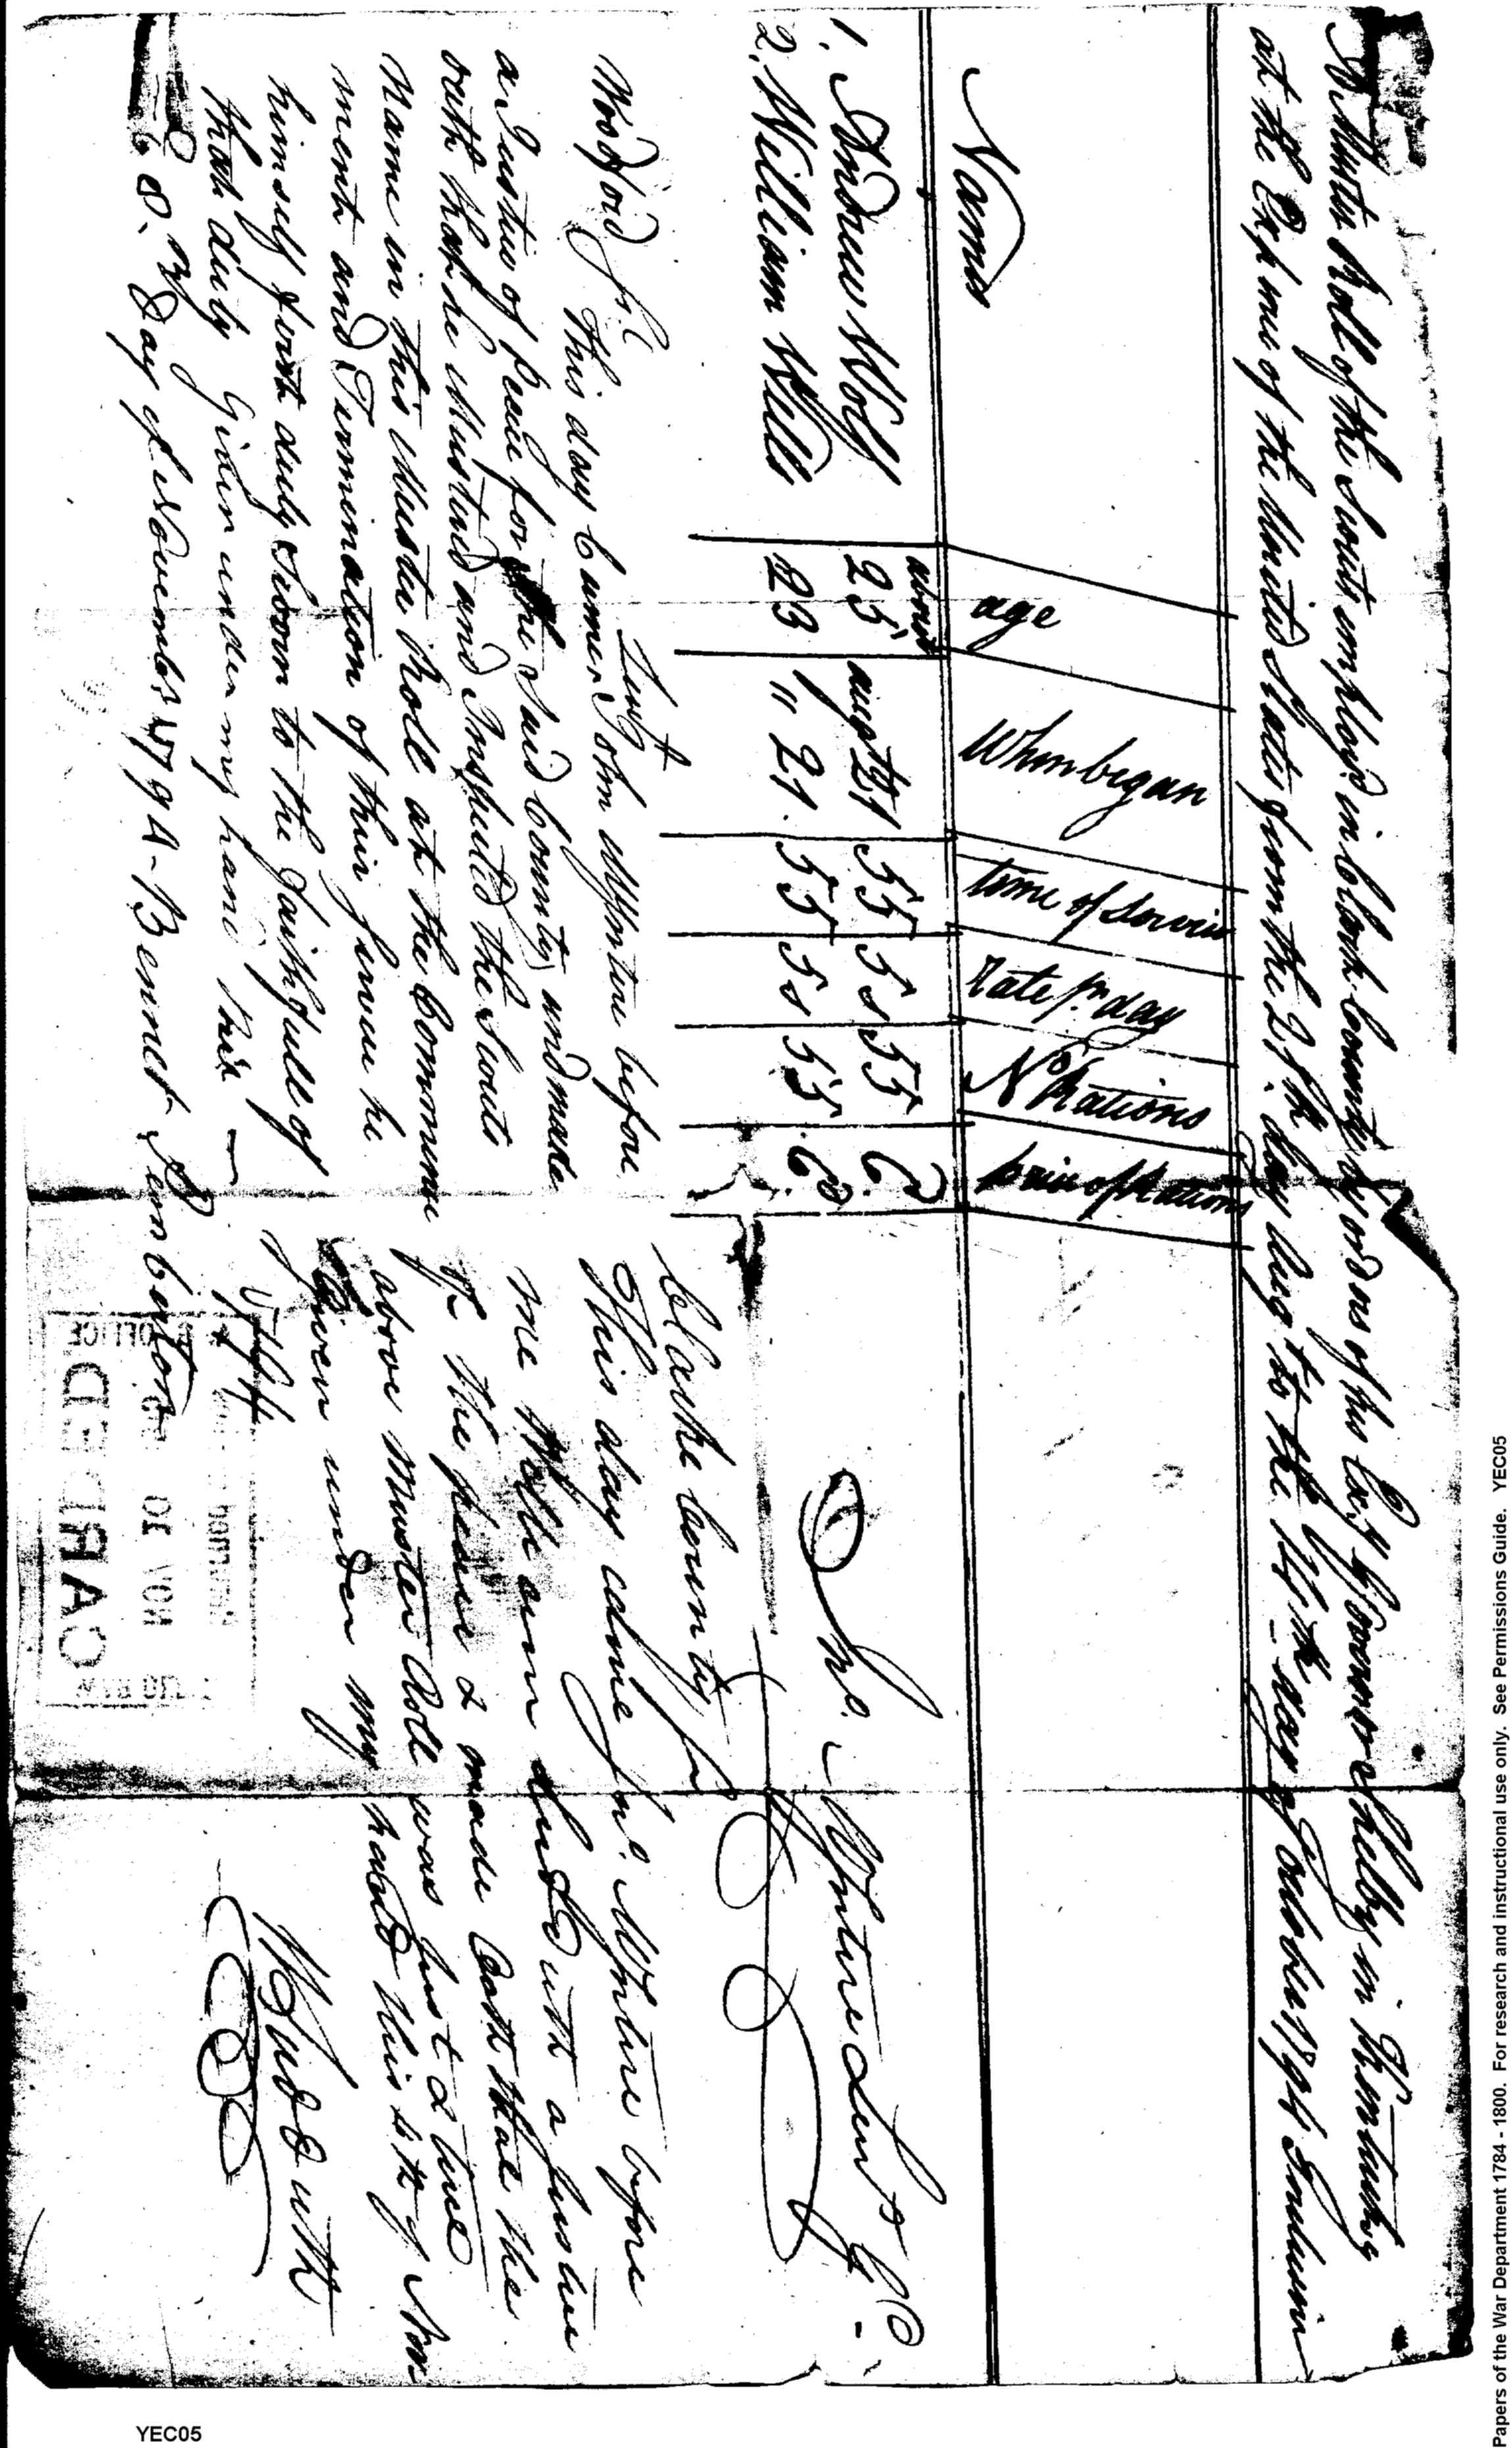 A Muster Roll of the Scouts employd in Clark County by orders of his Exy Governor Shelby in Kentucky
at the Expence of the United States from the 21th day Augt to the 14th day of october 1794 Inclusive
Names age When began time of Service Rate pr day No Rations price of Rations
about
1. Andrew Wolf 25 augt 21 55 5s 55 6d
2. William Wells 23 " 21. 55 5s 55 6d
Jno. McIntire Lieut
Woodford Sc
Lieut
This day Came John McIntire before
a Justice of peace for the said County and made
oath that he Mustered and Inspected the Scouts
Name in this Muster Roll at the Commence
ment and Termination of their Service he
himself first duly Sworn to the faithfull of
that duty Given under my hand this
8. Day of November 1794 - Bennet Pemberton
Clarke County Sc
This day came Jno. McIntire before
me Wm Sudduth a Justice
of the peace & made Oath that the
above Muster Roll was Just & true
Given under my hand this 4th of Nov
1794
Wm Sudduth
CARDED
WAR
NOV 10
OFFICE
YEC05
Papers of the War Department 1784 - 1800. For research and instructional use only. See Permissions Guide. YEC05